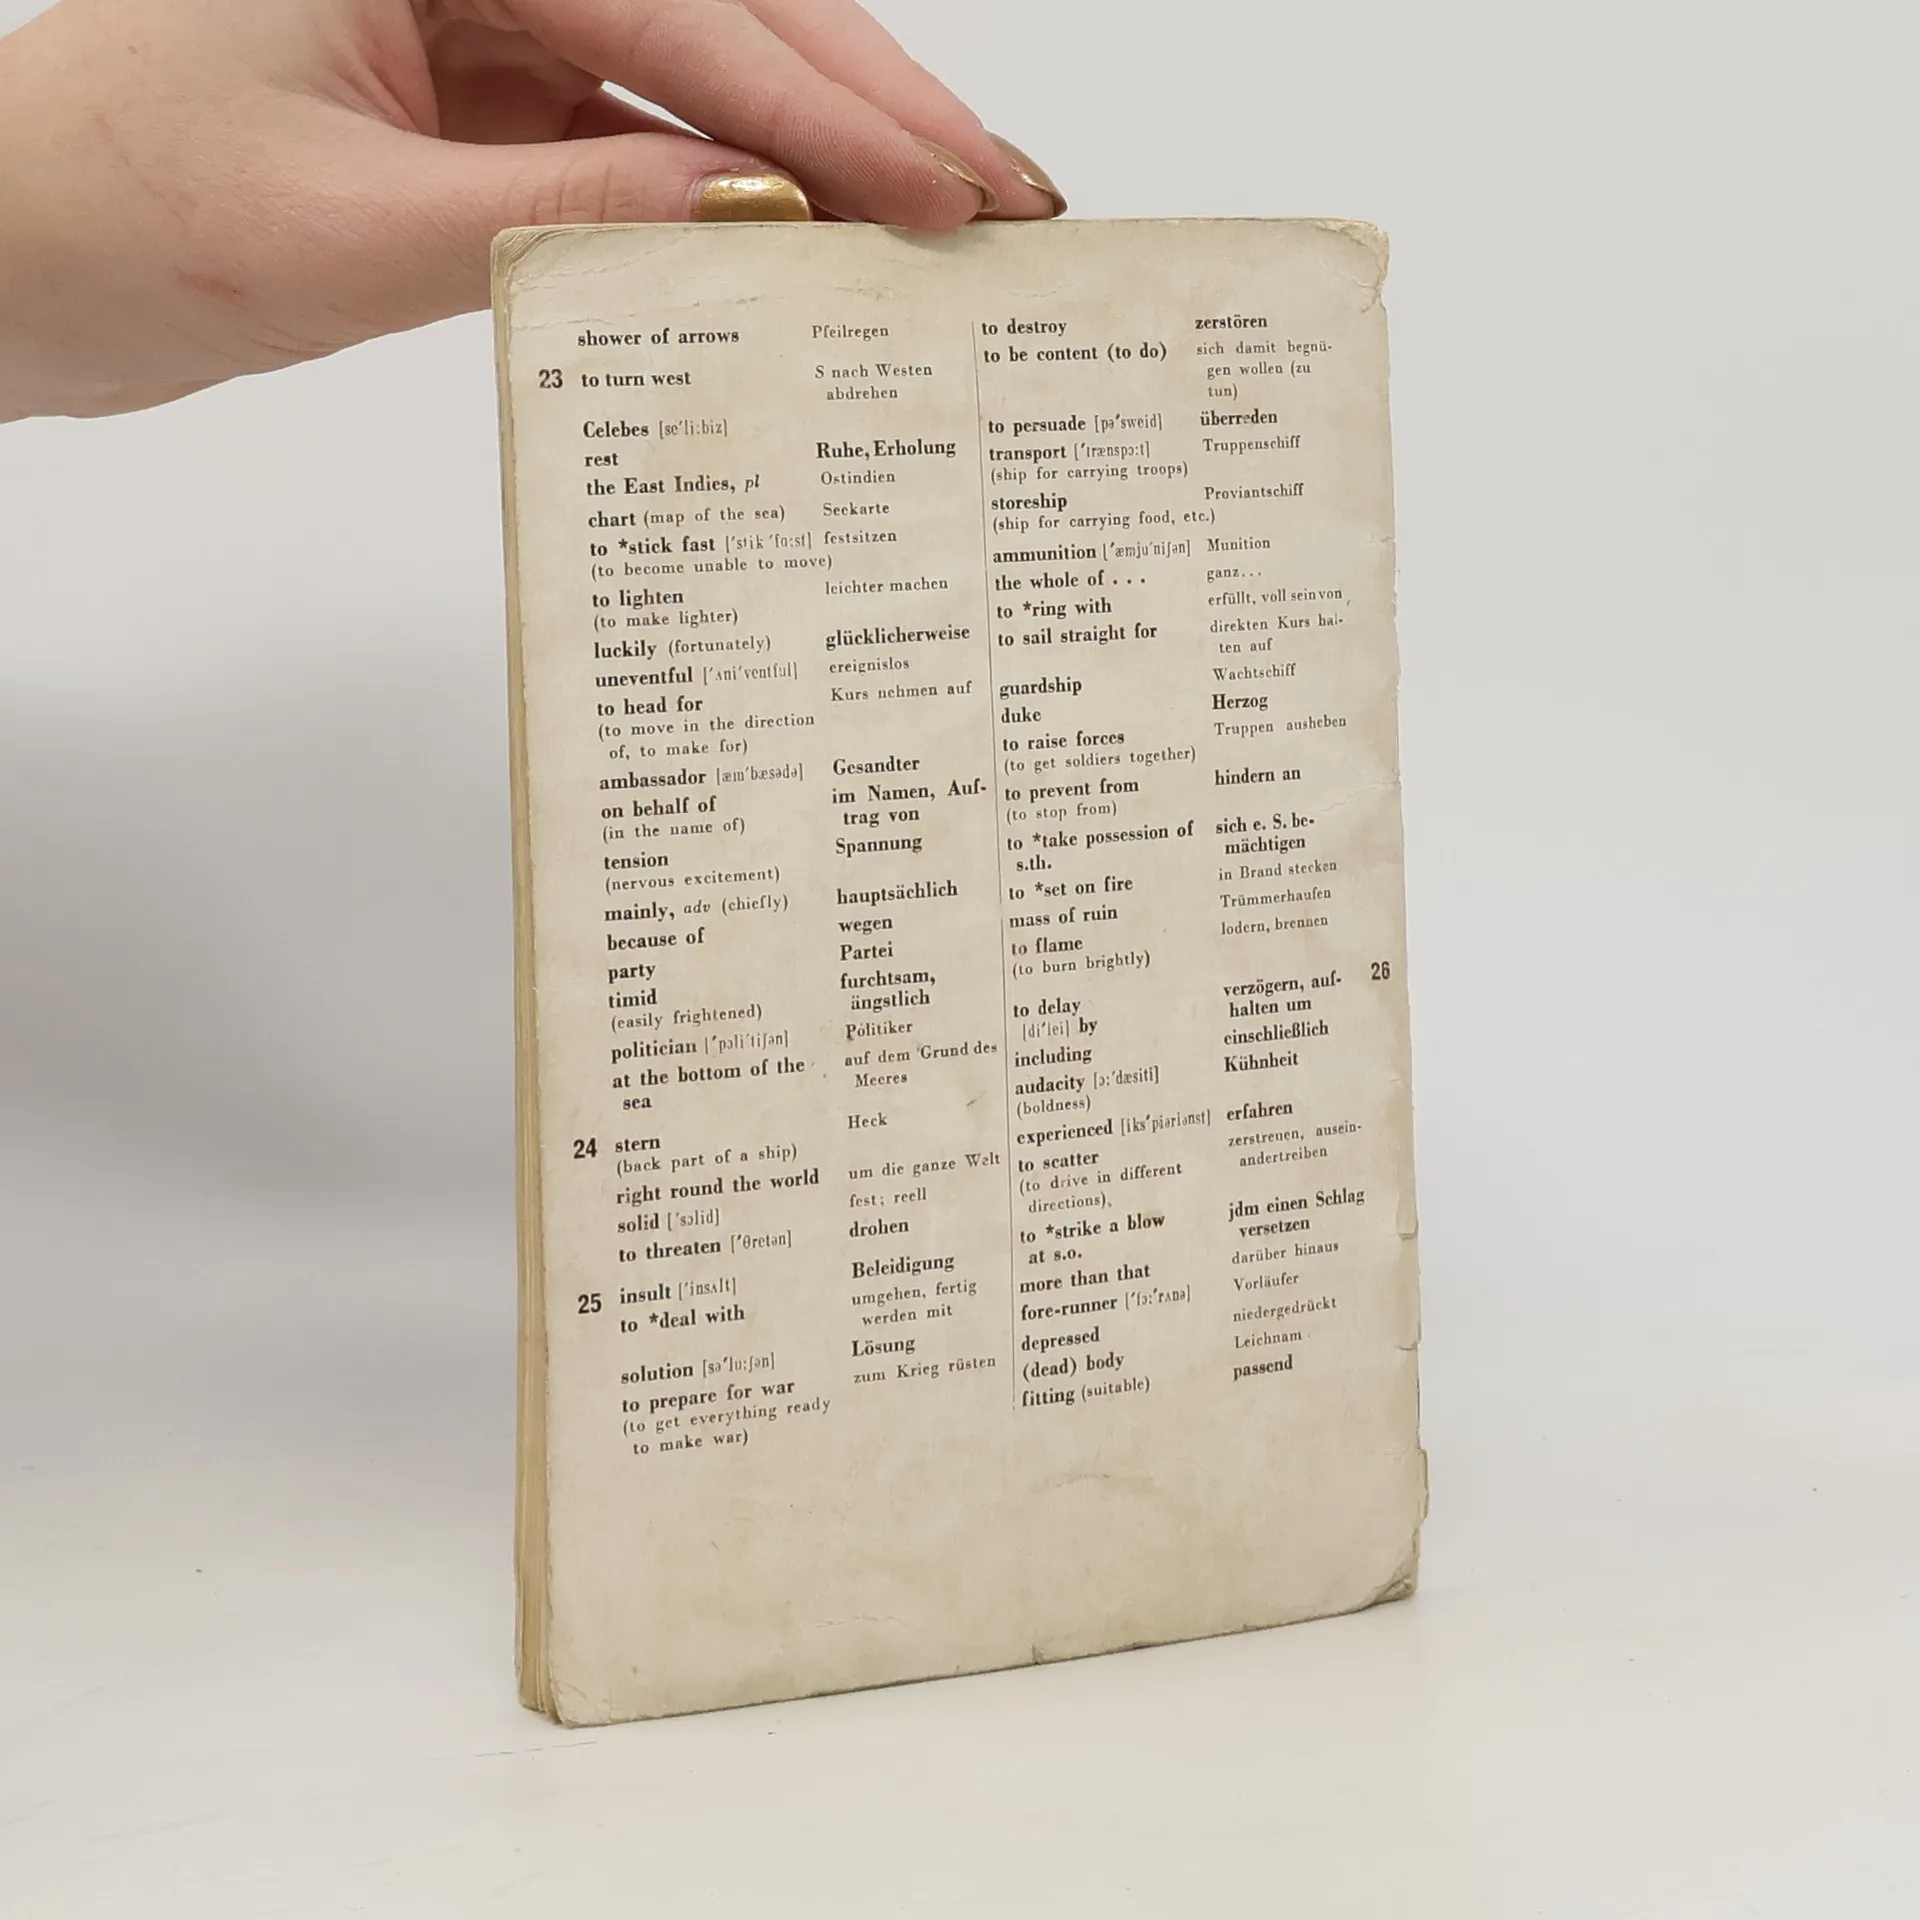 shower of arrows Pfeilregen
23 to turn west S nach Westen
abdrehen
Celebes [se'li:biz]
rest Ruhe, Erholung
the East Indies, pl Ostindien
chart (map of the sea) Seekarte
to *stick fast ['stik 'fɑ:st] festsitzen
(to become unable to move)
to lighten leichter machen
(to make lighter)
luckily (fortunately) glücklicherweise
uneventful ['ʌni'ventful] ereignislos
to head for Kurs nehmen auf
(to move in the direction
of, to make for)
ambassador [æm'bæsədə] Gesandter
on behalf of im Namen, Auf-
(in the name of) trag von
tension Spannung
(nervous excitement)
mainly, adv (chiefly) hauptsächlich
because of wegen
party Partei
timid furchtsam,
(easily frightened) ängstlich
politician ['pɔli'tiʃən] Politiker
at the bottom of the auf dem Grund des
sea Meeres
24 stern Heck
(back part of a ship)
right round the world um die ganze Welt
solid ['sɔlid] fest; reell
to threaten ['θretən] drohen
25 insult ['insʌlt] Beleidigung
to *deal with umgehen, fertig
werden mit
solution [sə'lu:ʃən] Lösung
to prepare for war zum Krieg rüsten
(to get everything ready
to make war)
to destroy zerstören
to be content (to do) sich damit begnü-
gen wollen (zu
tun)
to persuade [pə'sweid] überreden
transport ['trænspɔ:t] Truppenschiff
(ship for carrying troops)
storeship Proviantschiff
(ship for carrying food, etc.)
ammunition ['æmju'niʃən] Munition
the whole of . . . ganz...
to *ring with erfüllt, voll sein von
to sail straight for direkten Kurs hal-
ten auf
guardship Wachtschiff
duke Herzog
to raise forces Truppen ausheben
(to get soldiers together)
to prevent from hindern an
(to stop from)
to *take possession of sich e. S. be-
s.th. mächtigen
to *set on fire in Brand stecken
mass of ruin Trümmerhaufen
to flame lodern, brennen
(to burn brightly)
26
to delay verzögern, auf-
[di'lei] by halten um
including einschließlich
audacity [ɔ:'dæsiti] Kühnheit
(boldness)
experienced [iks'piəriənst] erfahren
to scatter zerstreuen, ausein-
(to drive in different andertreiben
directions)
to *strike a blow jdm einen Schlag
at s.o. versetzen
more than that darüber hinaus
fore-runner ['fɔ:'rʌnə] Vorläufer
depressed niedergedrückt
(dead) body Leichnam
fitting (suitable) passend